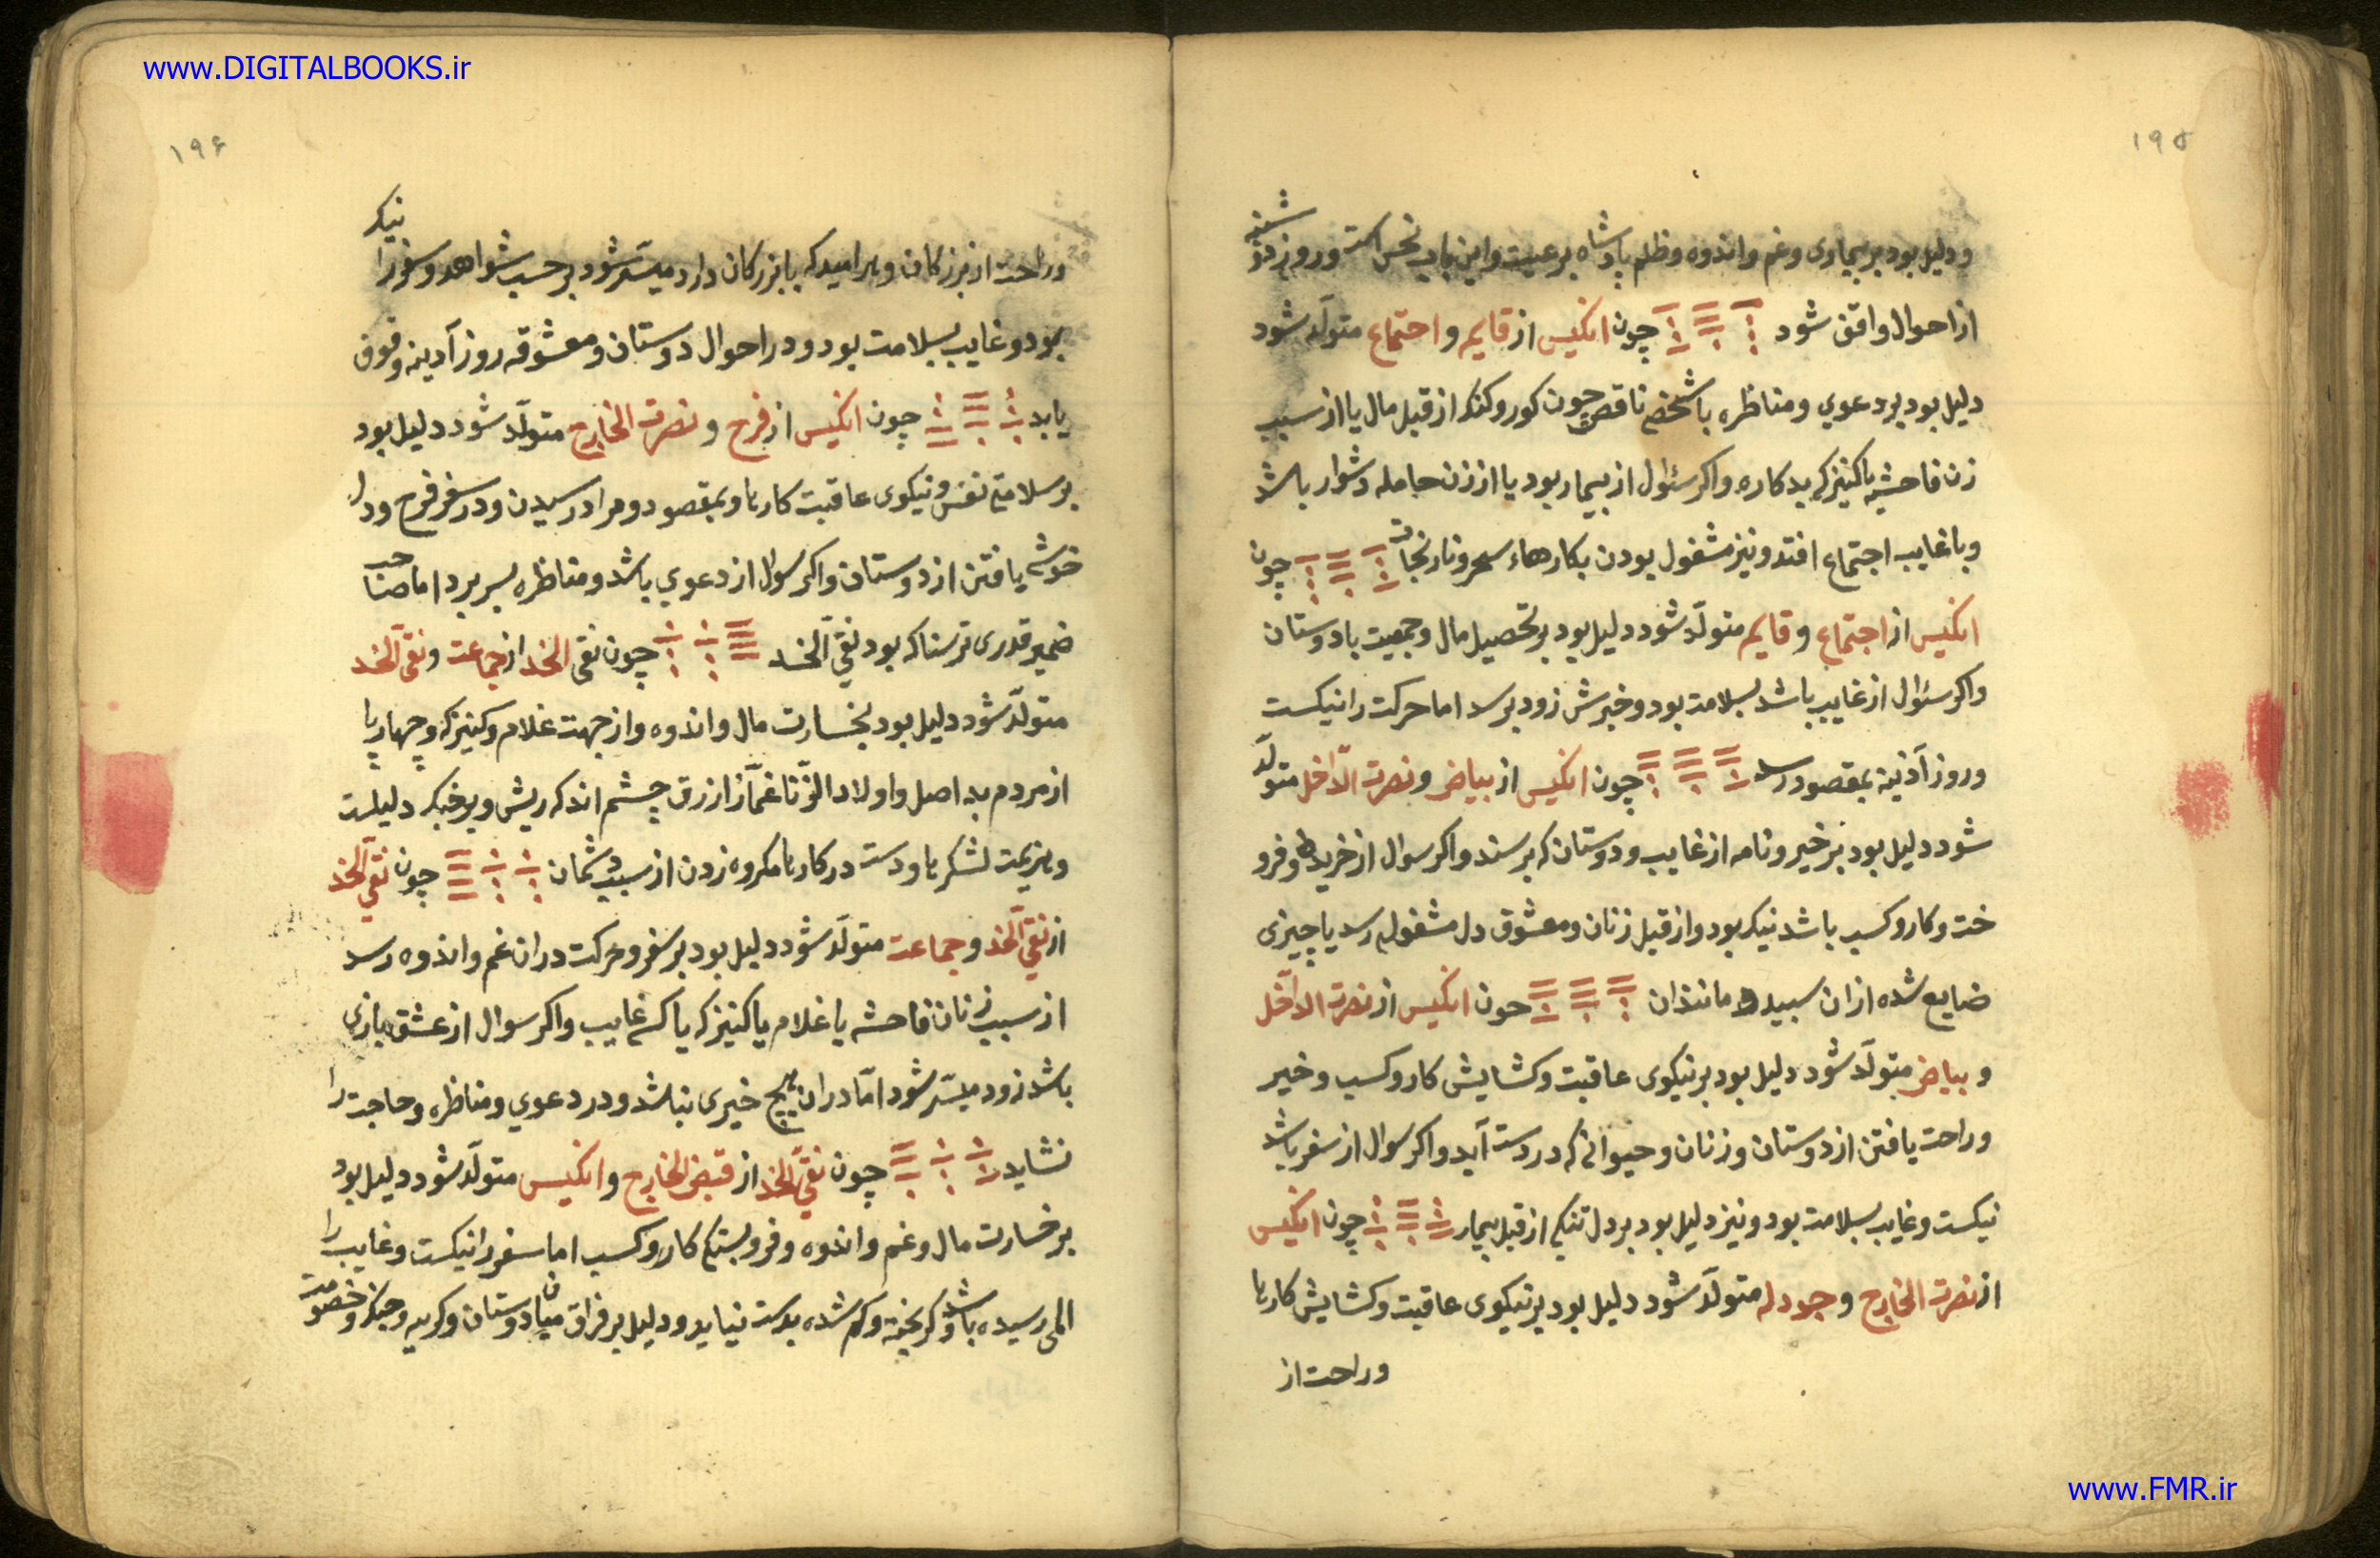 www.DIGITALBOOKS.ir
۱۹۵
ودلیل بود بر بیماری وغم واندوه وظلم پادشاه برعیت واین باب نحس است وروز دوشنبه
از احوال واقف شود چون انکیس از قایم و اجتماع متولّد شود
دلیل بود بر دعوی ومناظره باشخص ناقص چون کور وکنک از قبل مال یا از سبب
زن فاحشه یا کنیزک بدکاره واکر سئوال از بیمار بود یا از زن حامله دشوار باشد
وبا غایب اجتماع افتد ونیز مشغول بودن بکارهاء سحر ونارنجات چون
انکیس از اجتماع و قایم متولّد شود دلیل بود بر تحصیل مال وجمعیت با دوستان
واکر سئوال از غایب باشد بسلامت بود وخبرش زود برسد اما حرکت را نیکست
وروز آذینه بمقصود رسد چون انکیس از بیاض و نصرت الدّاخل متولّد
شود دلیل بود بر خیر ونامه از غایب ودوستان که برسند واکر سوال از خرید وفرو
خت وکار وکسب باشد نیک بود واز قبل زنان ومعشوق دل مشغولی رسد یا چیزی
ضایع شده ازان سبید ماننذان چون انکیس از نصرت الداخل
و بیاض متولّد شود دلیل بود بر نیکوی عاقبت وکشایش کار وکسب وخیر
وراحت یافتن از دوستان وزنان وحیوانی که در دست آید واکر سوال از سفر باشد
نیکست وغایب بسلامت بود ونیز دلیل بود بر دل تنکی از قبل بیمار چون انکیس
از نصرت الخارج و جودله متولّد شود دلیل بود بر نیکوی عاقبت وکشایش کارها
وراحت از
۱۹۶
وراحت از بزرکان وهر امید که با بزرکان دارد میسّر شود بر حسب شواهد وسفر را نیک
بود وغایب بسلامت بود ودر احوال دوستان ومعشوقه روز آدینه وقوف
یابد چون انکیس از فرح و نصرت الخارج متولّد شود دلیل بود
بر سلامتی نفس ونیکوی عاقبت کارها وبمقصود ومراد رسیدن ودر سفر فرح ودل
خوشی یافتن از دوستان واکر سوال از دعوی باشد ومناظره بسر برد اما صاحب
ضمیر قدری ترسناک بود نقی الخد چون نقی الخد از جماعت و نقی الخد
متولّد شود دلیل بود بخسارت مال واندوه واز جهت غلام وکنیزک وچهارپا
از مردم بد اصل واولاد الزّنا غمّاز ازرق چشم اندک ریش ودلیلست
وهزیمت لشکرها ودست در کارها مکروه زدن از سبب دشمنان چون نقی الخد
از نقی الخد و جماعت متولّد شود دلیل بود بر سفر وحرکت دران غم واندوه رسد
از سبب زنان فاحشه یا غلام یا کنیزک یا کسی غایب واکر سوال از عشق بازی
باشد زود میسّر شود امّا دران هیچ خیری نباشد ودر دعوی ومناظره وحاجت را
نشاید چون نقی الخد از قبض الخارج و انکیس متولّد شود دلیل بود
بر خسارت مال وغم واندوه وفرو بستکی کار وکسب اما سفر را نیکست وغایب را
المی رسیده باشد وکریخته وکم شده بدست نیاید ودلیل بر فراق میان دوستان وکریه وجنک وخصومت
www.FMR.ir